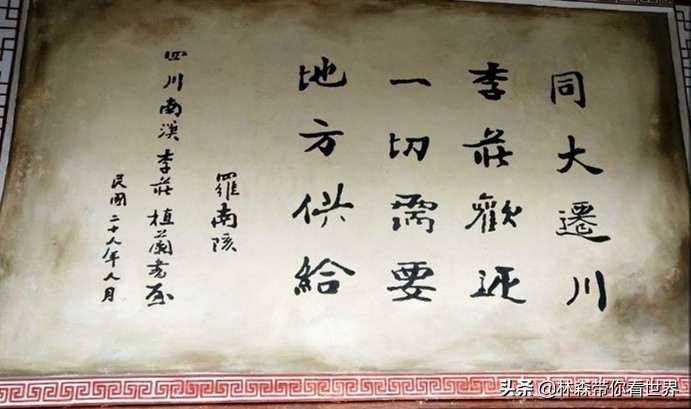 同大遷川
李莊歡迎
一切需要
地方供給
羅南陔
四川南溪李莊植蘭書屋
民國二十八年八月
头条 @林森带你看世界